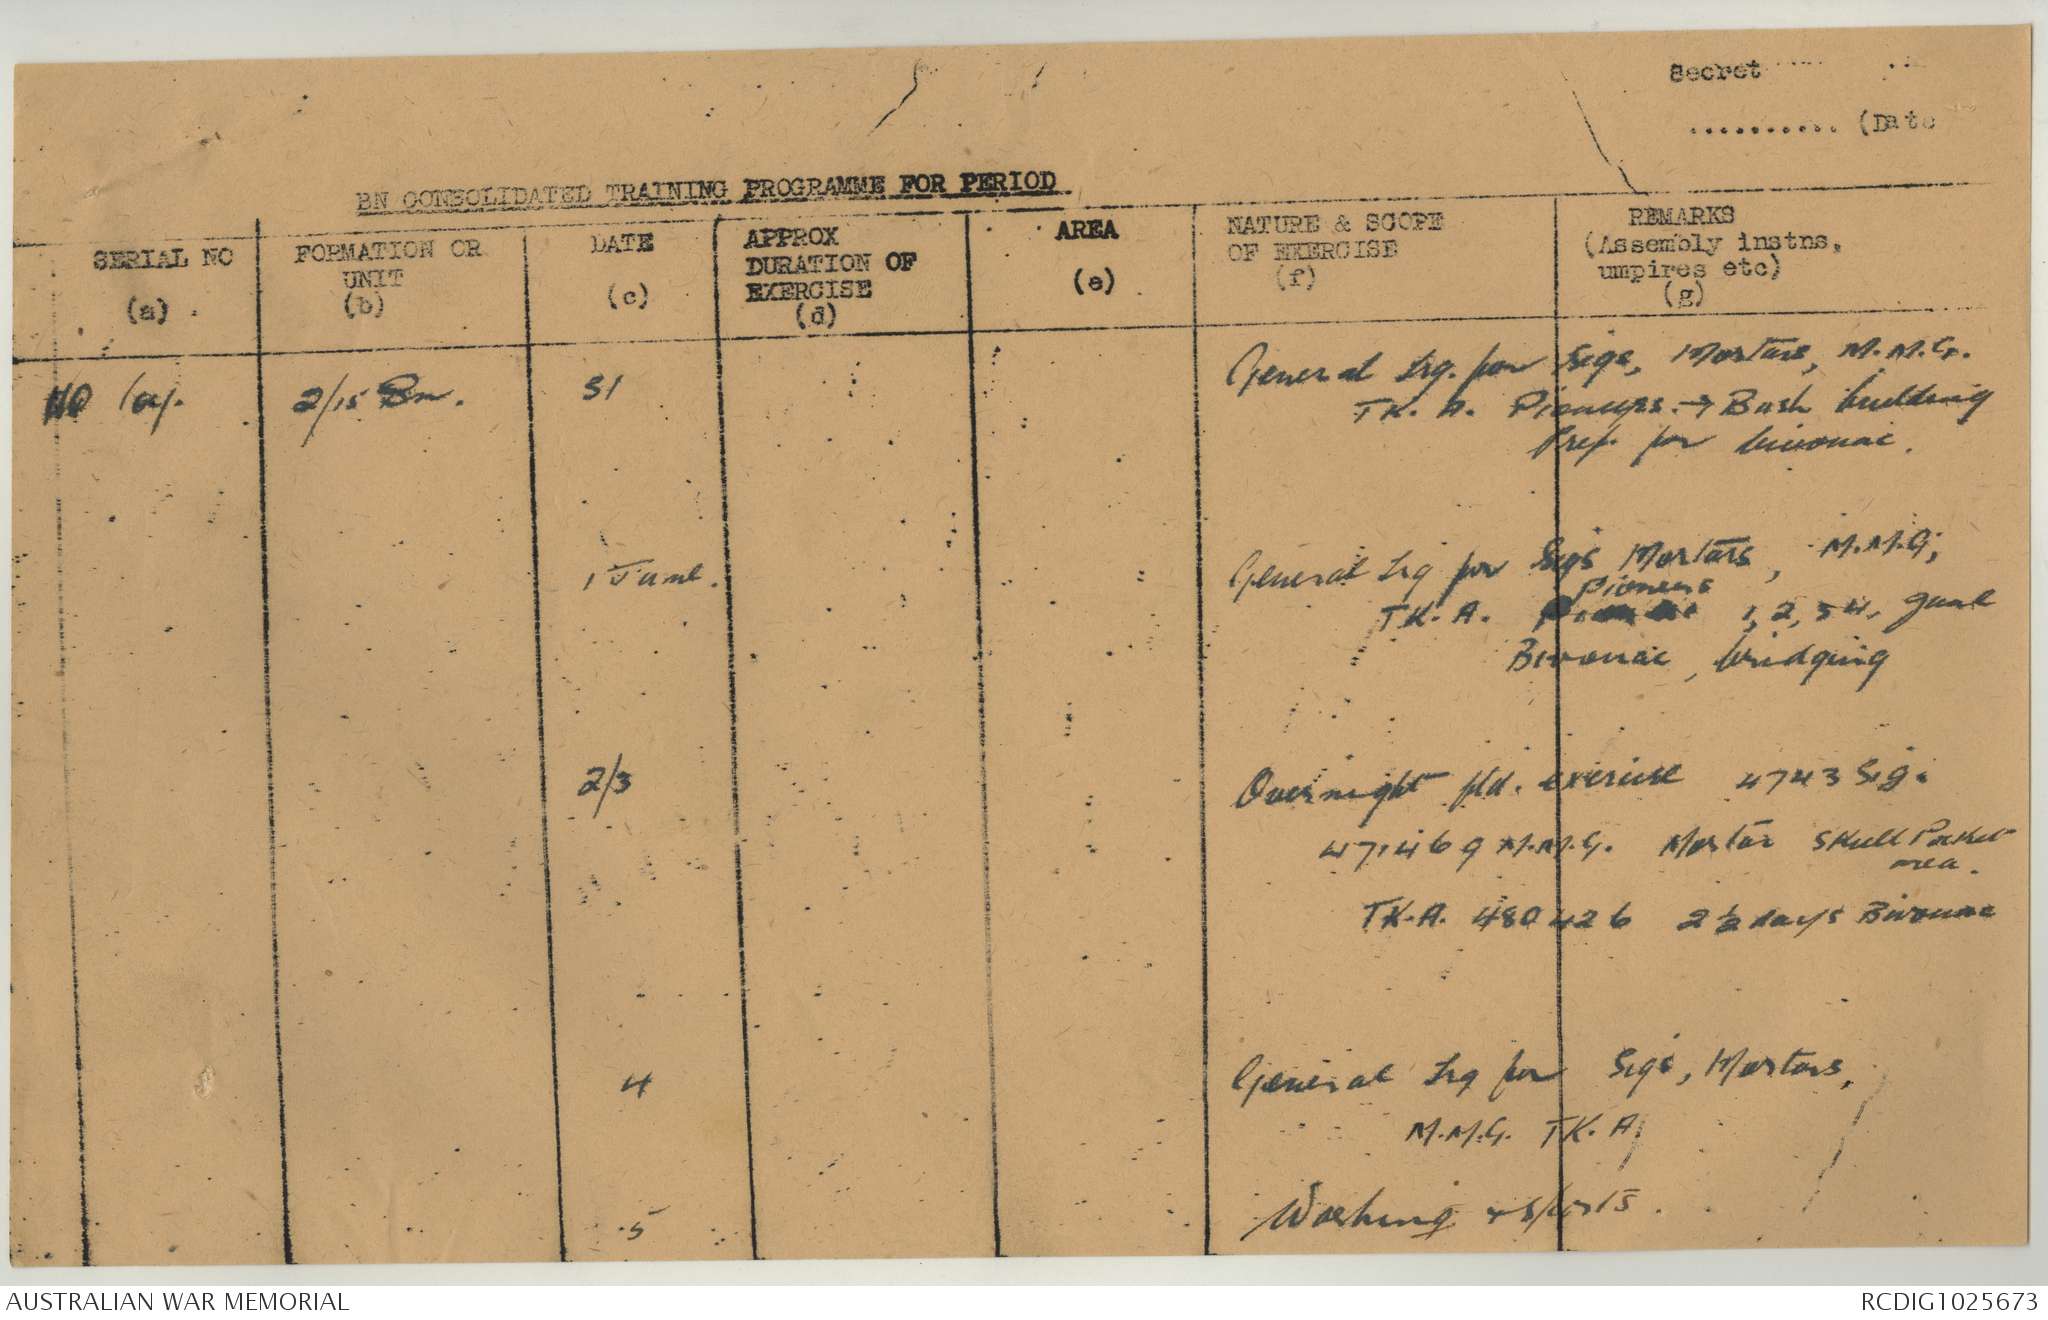 Secret
.......... (Date
BN CONSOLIDATED TRAINING PROGRAMME FOR PERIOD
SERIAL NO
(a)
FORMATION OR
UNIT
(b)
DATE
(c)
APPROX
DURATION OF
EXERCISE
(d)
AREA
(e)
NATURE & SCOPE
OF EXERCISE
(f)
REMARKS
(Assembly instns,
umpires etc)
(g)
HQ Coy. 2/15 Bn. 31 General trg. for Sigs, Mortars, M.M.G.
TK. A. Pioneers → Bush building
Prep. for bivouac.
1 June. General trg for Sigs Mortars, M.M.G,
Pioneers
TK. A. 1, 2, 3 4,
Bivouac, bridging
2/3 Overnight fld. exercise 4743 Sig.
47,469 M.M.G. Mortar Skull Pocket
area.
TK.A. 480426 2½ days Bivouac
4 General trg for Sigs, Mortars,
M.M.G. TK. A,
5 Washing & sports.
AUSTRALIAN WAR MEMORIAL
RCDIG1025673